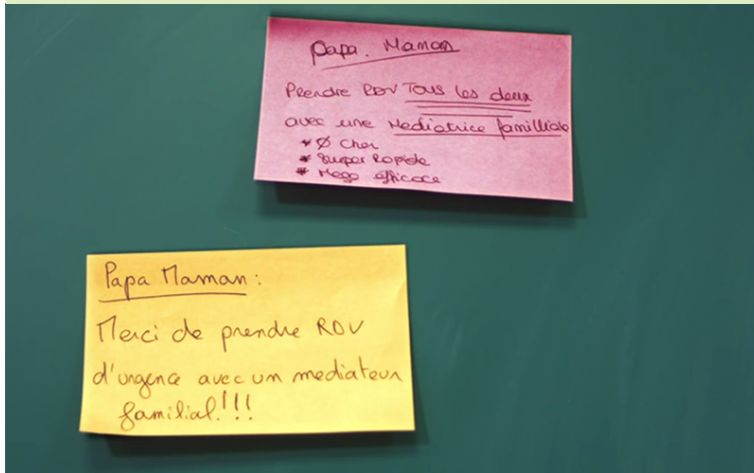 Papa. Maman
Prendre RDV Tous les deux
avec une Mediatrice familliale
* Ø Cher
* Super Rapide
* Mega efficace
Papa Maman :
Merci de prendre RDV
d'urgence avec un mediateur
familial.!!!